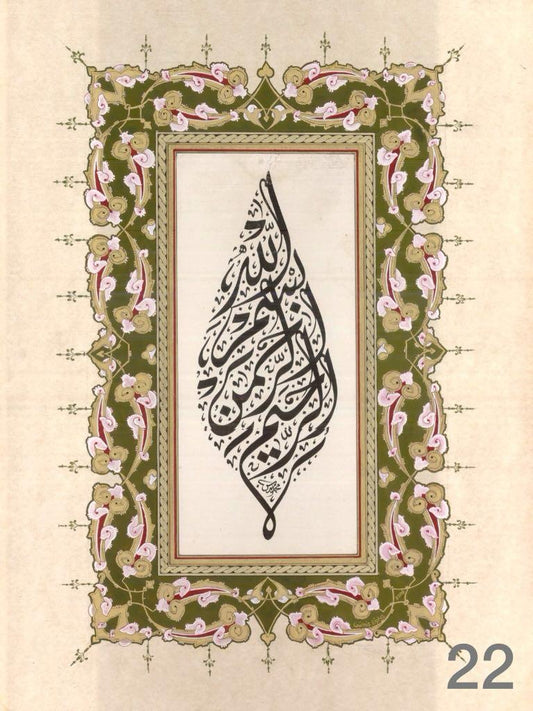 بسم الله الرحمن الرحيم
22